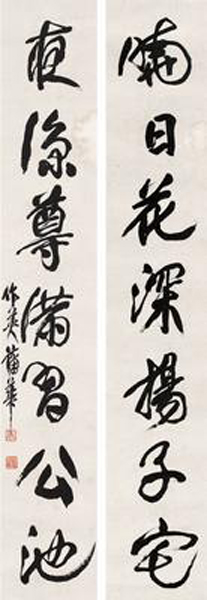 晴日花深揚子宅
夜涼尊滿習公池
作英蒲華